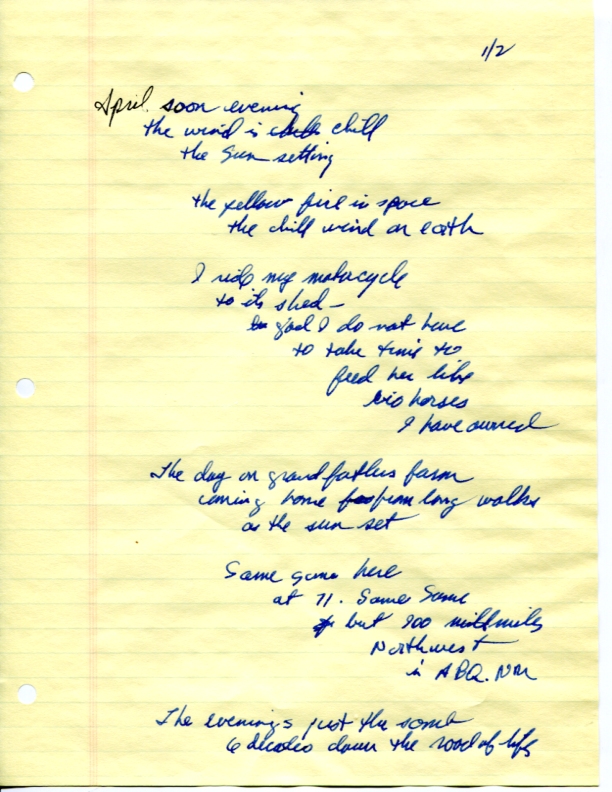 1/2
April. soon evening
the wind is chill chill
the Sun setting
the yellow fire in space
the chill wind on earth
I ride my motorcycle
to its shed –
god I do not have
to take time to
feed her like
horses
I have owned
The day on grandfathers farm
coming home from long walks
as the sun set
Same game here
at 71. Same Same
but 900 miles
Northwest
in ABQ. NM
The evenings just the same
6 decades down the road of life